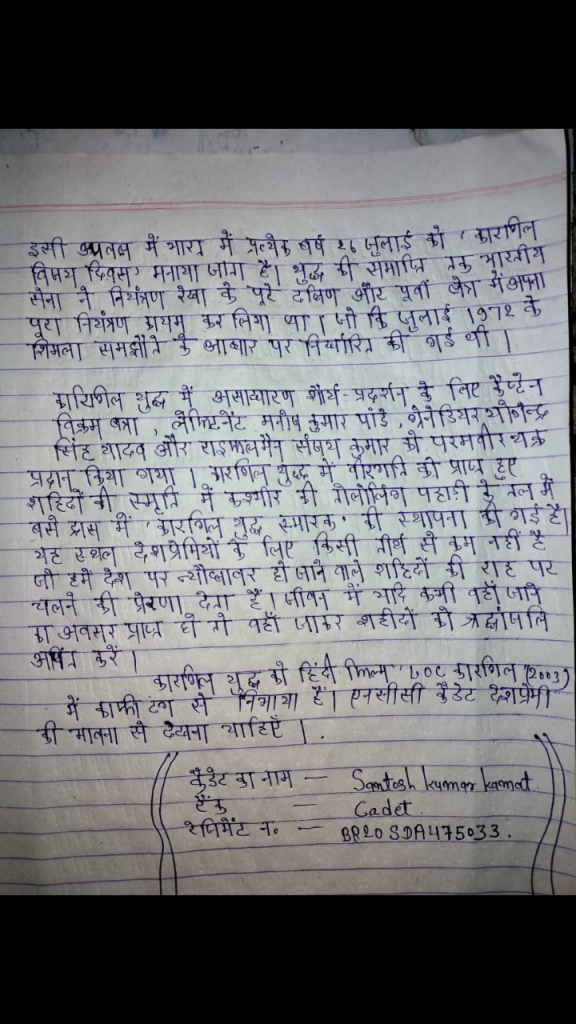 इसी उपलक्ष में भारत में प्रत्येक वर्ष 26 जुलाई को 'कारगिल
विजय दिवस' मनाया जाता है। युद्ध की समाप्ति तक भारतीय
सेना ने नियंत्रण रेखा के पूरे दक्षिण और पूर्वी क्षेत्र में अपना
पूरा नियंत्रण कायम कर लिया था। जो कि जुलाई 1972 के
शिमला समझौते के आधार पर निर्धारित की गई थी।
कारगिल युद्ध में असाधारण शौर्य-प्रदर्शन के लिए कैप्टेन
विक्रम बत्रा, लेफ्टिनेंट मनोज कुमार पांडे, ग्रेनेडियर योगेन्द्र
सिंह यादव और राइफलमैन संजय कुमार को परमवीर चक्र
प्रदान किया गया। कारगिल युद्ध में वीरगति को प्राप्त हुए
शहिदों की स्मृति में कश्मीर की तोलोलिंग पहाड़ी के तल में
बसे द्रास में 'कारगिल युद्ध स्मारक' की स्थापना की गई है।
यह स्थल देशप्रेमियों के लिए किसी तीर्थ से कम नहीं है
जो हमें देश पर न्यौछावर हो जाने वाले शहिदों की राह पर
चलने की प्रेरणा देता है। जीवन में यदि कभी वहाँ जाने
का अवसर प्राप्त हो तो वहाँ जाकर शहीदों को श्रद्धांजलि
अर्पित करें।
कारगिल युद्ध को हिंदी फिल्म "LOC कारगिल (2003)
में काफी ढंग से निभाया है। एनसीसी कैडेट देशप्रेमी
की भावना से देखना चाहिएँ।
कैडेट का नाम — Santosh kumar kamat
रैंक — Cadet
रेजिमेंट न॰ — BR20SDA475033.